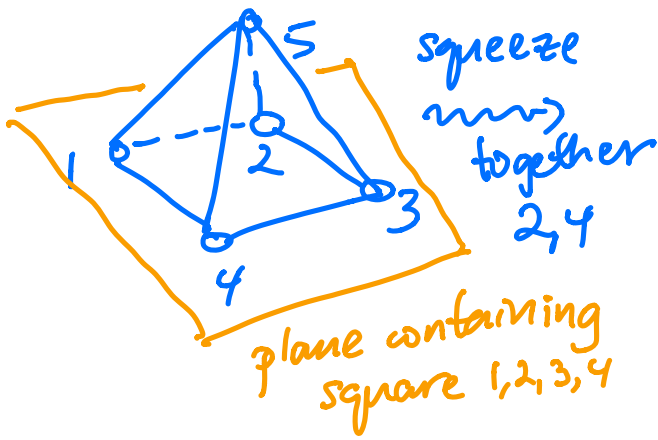 5
squeeze
together
2,4
1
2
3
4
plane containing
square 1,2,3,4